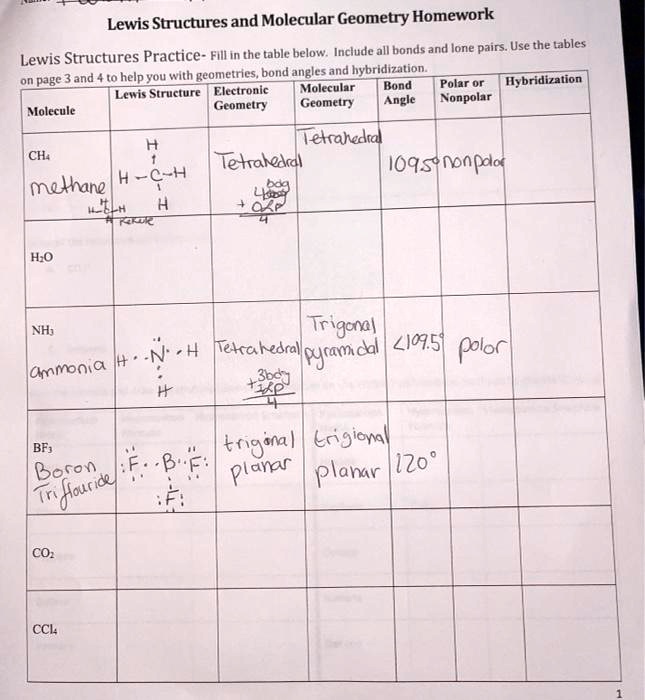 Lewis Structures and Molecular Geometry Homework
Lewis Structures Practice- Fill in the table below. Include all bonds and lone pairs. Use the tables
on page 3 and 4 to help you with geometries, bond angles and hybridization.
Molecule Lewis Structure Electronic Geometry Molecular Geometry Bond Angle Polar or Nonpolar Hybridization
CH₄
methane
H
H-C-H
H
Tetrahedral
4
Tetrahedral
109.5° nonpolar
H₂O
NH₃
ammonia
H··N··H
H
Tetrahedral
3bdg
+1LP
4
Trigonal
pyramidal
<109.5°
polor
BF₃
Boron
Triflouride
:F··B··F:
:F:
trigonal
planar
trigional
planar
120°
CO₂
CCl₄
1